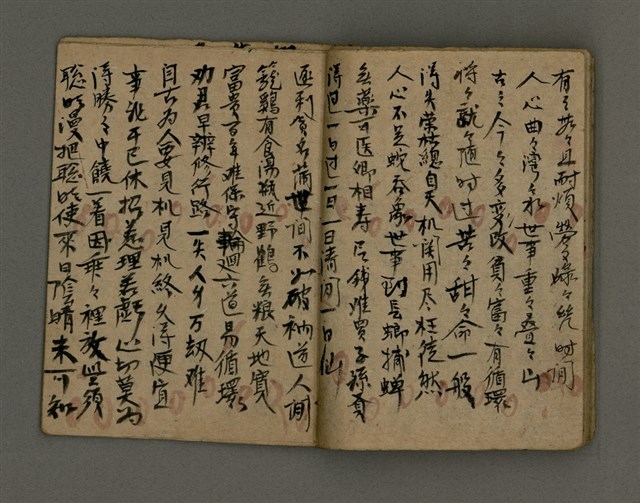 有々苦々且耐煩勞々碌々幾時間
人心曲々灣々水世事重々叠々山
古々今々多变改貧々富々有循環
將々就々随时过苦々甜々命一般
得失荣枯總自天机関用尽枉徒然
人心不足蛇吞象世事到头螂捕蝉
無藥可医卿相寿有錢难買子孫賢
得过一日过一日一日清閒一日仙
逐利貪名滿世间不如破衲道人閒
籠鷄有食湯鍋近野鶴無粮天地寬
富貴百年难保守輪迴六道易循環
劝君早辦修行路一失人身万劫难
自古为人要見机見机終久得便宜
事非干己休招惹理若虧心切莫为
得勝々中饒一着因乖々裡放些須
聪明漫把聪明使來日陰晴未可知